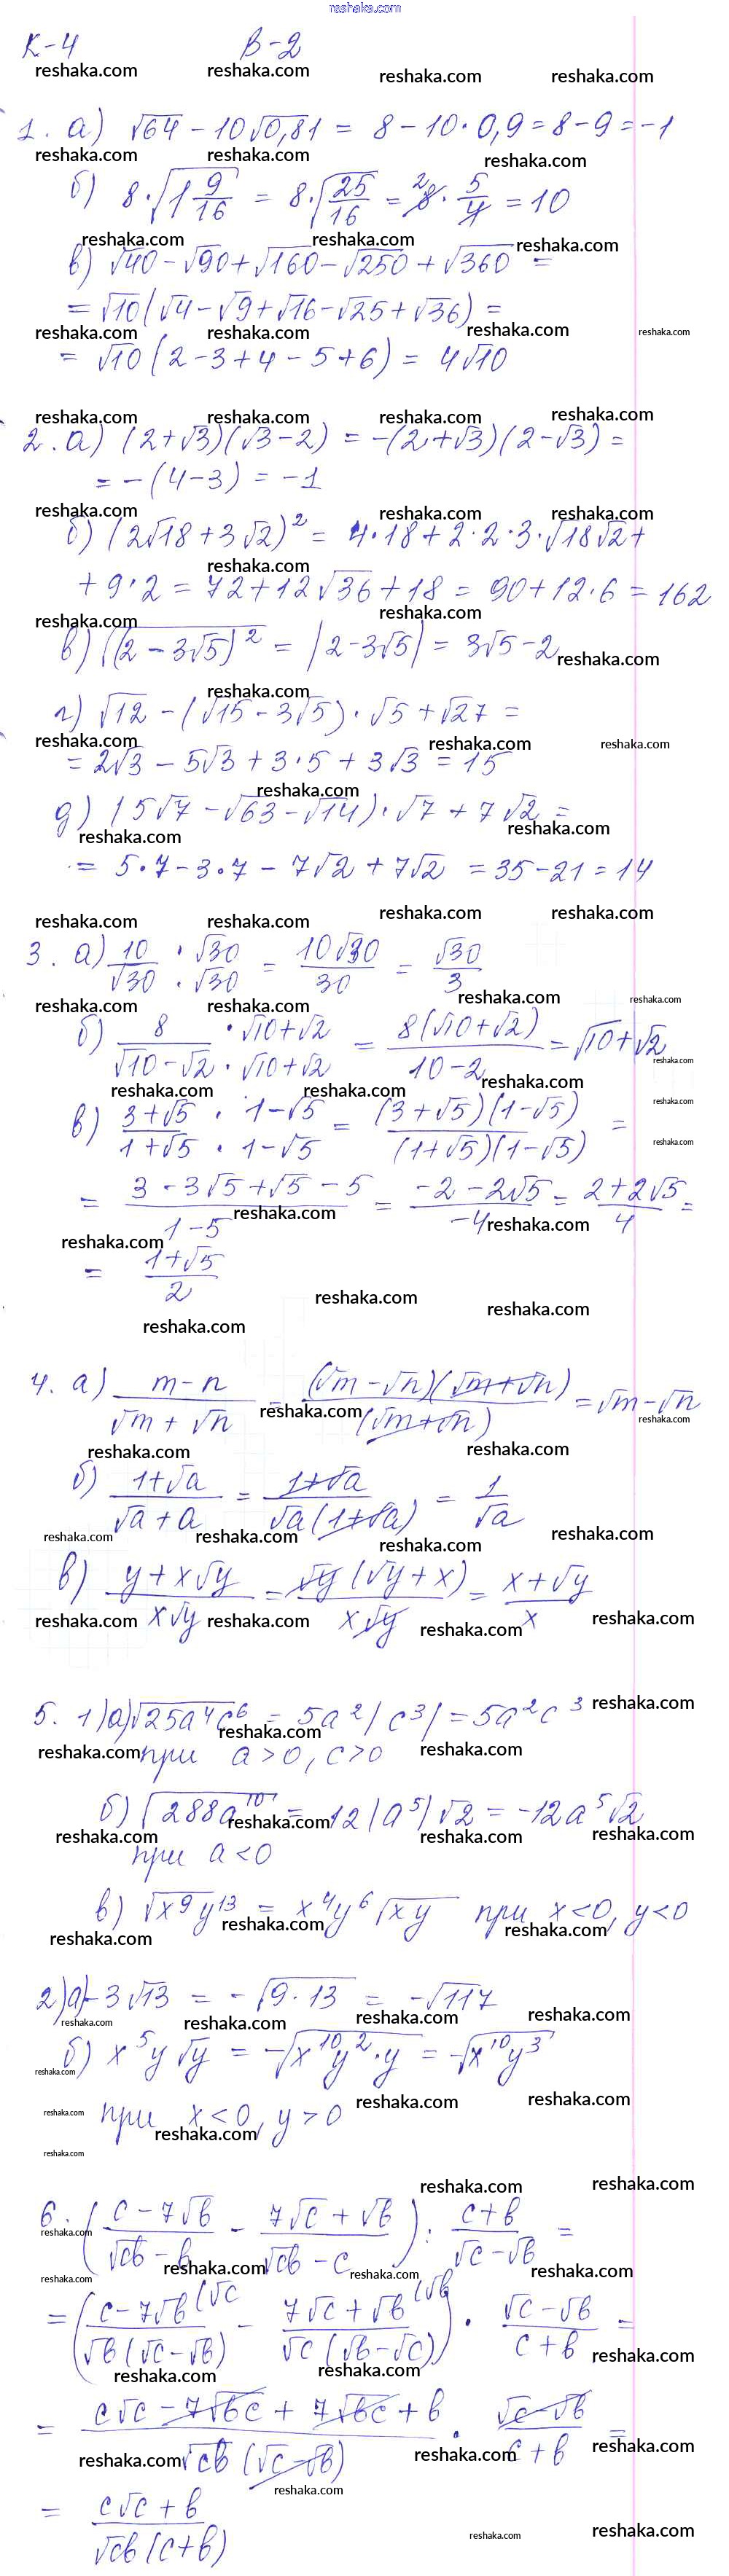 reshaka.com
К-4 В-2
1. а) √64 - 10√0,81 = 8 - 10·0,9 = 8 - 9 = -1
б) 8·√(1 9/16) = 8·√(25/16) = 8·5/4 = 10
в) √40 - √90 + √160 - √250 + √360 =
= √10(√4 - √9 + √16 - √25 + √36) =
= √10(2 - 3 + 4 - 5 + 6) = 4√10
2. а) (2+√3)(√3-2) = -(2+√3)(2-√3) =
= -(4-3) = -1
б) (2√18 + 3√2)² = 4·18 + 2·2·3·√18√2 +
+ 9·2 = 72 + 12√36 + 18 = 90 + 12·6 = 162
в) √((2-3√5)²) = |2-3√5| = 3√5-2
г) √12 - (√15 - 3√5)·√5 + √27 =
= 2√3 - 5√3 + 3·5 + 3√3 = 15
д) (5√7 - √63 - √14)·√7 + 7√2 =
= 5·7 - 3·7 - 7√2 + 7√2 = 35 - 21 = 14
3. а) 10/√30 · √30/√30 = 10√30/30 = √30/3
б) 8/(√10-√2) · (√10+√2)/(√10+√2) = 8(√10+√2)/(10-2) = √10+√2
в) (3+√5)/(1+√5) · (1-√5)/(1-√5) = (3+√5)(1-√5)/((1+√5)(1-√5)) =
= (3-3√5+√5-5)/(1-5) = (-2-2√5)/(-4) = (2+2√5)/4 =
= (1+√5)/2
4. а) (m-n)/(√m+√n) = (√m-√n)(√m+√n)/(√m+√n) = √m-√n
б) (1+√a)/(√a+a) = (1+√a)/(√a(1+√a)) = 1/√a
в) (y+x√y)/(x√y) = √y(√y+x)/(x√y) = (x+√y)/x
5. 1) а) √(25a⁴c⁶) = 5a²|c³| = 5a²c³
при a>0, c>0
б) √(288a¹⁰) = 12|a⁵|√2 = -12a⁵√2
при a<0
в) √(x⁹y¹³) = x⁴y⁶√(xy) при x<0, y<0
2) а) -3√13 = -√(9·13) = -√117
б) x⁵y√y = -√(x¹⁰y²·y) = -√(x¹⁰y³)
при x<0, y>0
6. ((c-7√b)/(√cb-b) - (7√c+√b)/(√cb-c)) : (c+b)/(√c-√b) =
= ((c-7√b)/(√b(√c-√b)) (√c - (7√c+√b)/(√c(√b-√c)) (√b) · (√c-√b)/(c+b) =
= (c√c-7√bc+7√bc+b)/(√cb(√c-√b)) · (√c-√b)/(c+b) =
= (c√c+b)/(√cb(c+b))